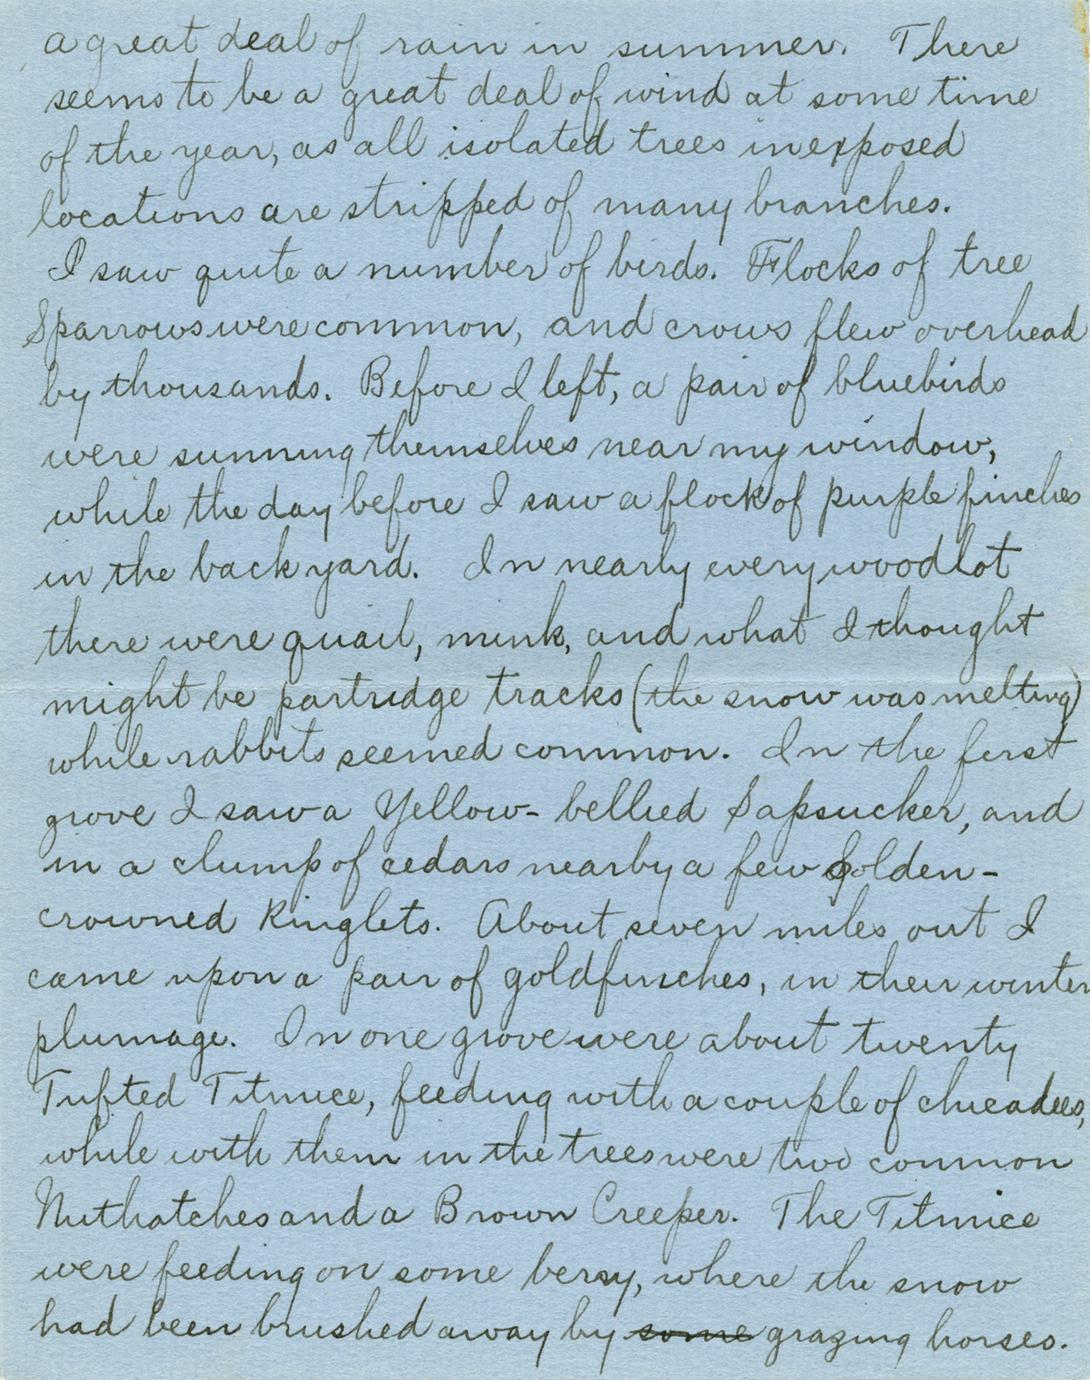 a great deal of rain in summer. There
seems to be a great deal of wind at some time
of the year, as all isolated trees in exposed
locations are stripped of many branches.
I saw quite a number of birds. Flocks of tree
Sparrows were common, and crows flew overhead
by thousands. Before I left, a pair of bluebirds
were sunning themselves near my window,
while the day before I saw a flock of purple finches
in the back yard. In nearly every woodlot
there were quail, mink, and what I thought
might be partridge tracks (the snow was melting)
while rabbits seemed common. In the first
grove I saw a Yellow-bellied Sapsucker, and
in a clump of cedars nearby a few Golden-
crowned Kinglets. About seven miles out I
came upon a pair of goldfinches, in their winter
plumage. In one grove were about twenty
Tufted Titmice, feeding with a couple of chicadees,
while with them in the trees were two common
Nuthatches and a Brown Creeper. The Titmice
were feeding on some berry, where the snow
had been brushed away by some grazing horses.